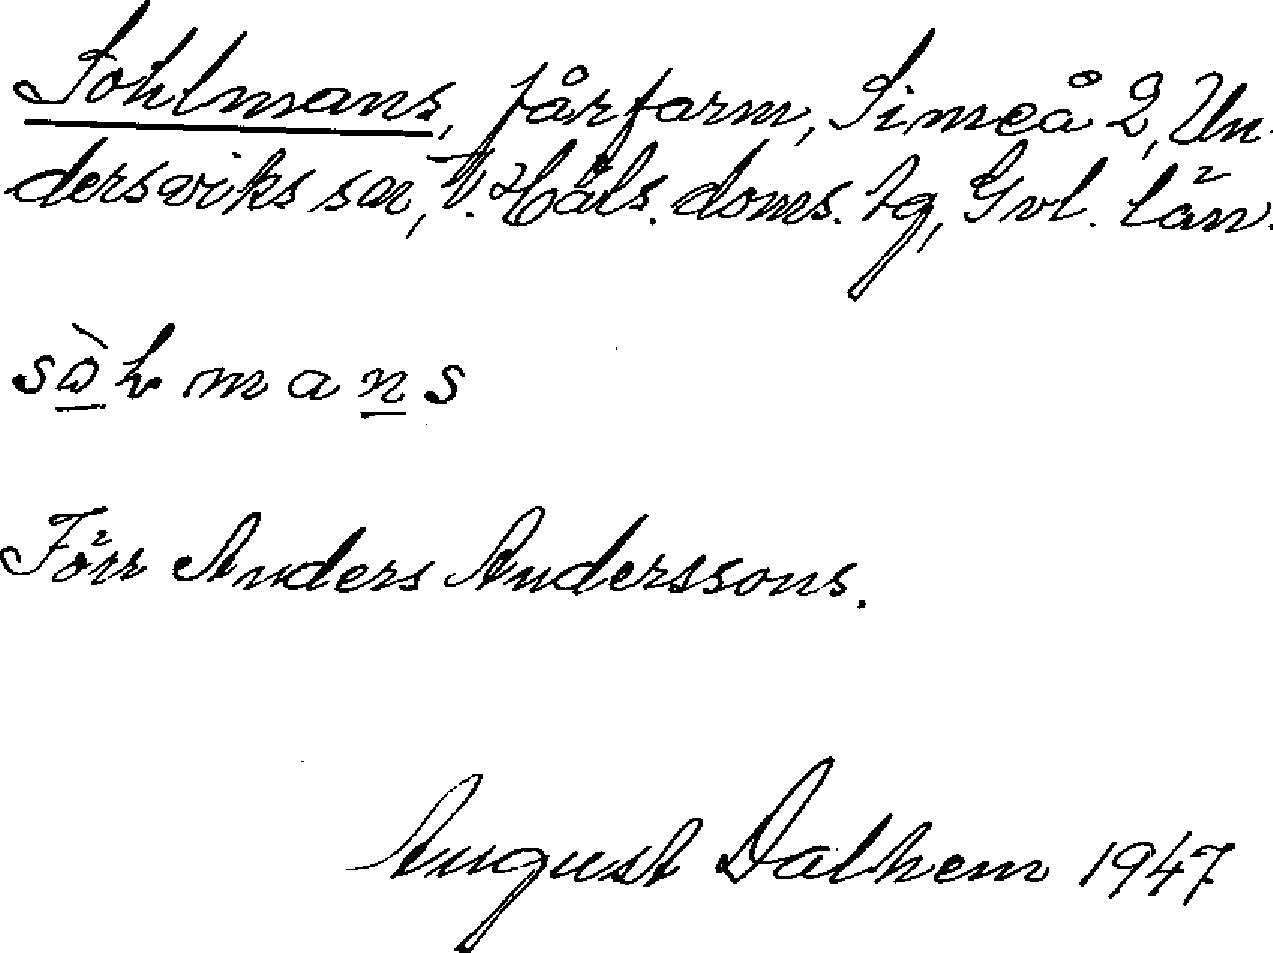 Sohlmans, fårfarm, Simeå 2, Un-
dersviks sn, V. Häls. doms. tg, Gvl. län.
sòlmans
Förr Anders Anderssons.
August Dalhem 1947